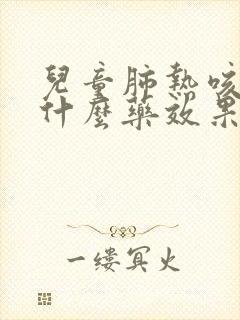 兒童肺熱咳
什麼藥效果
一缕冥火